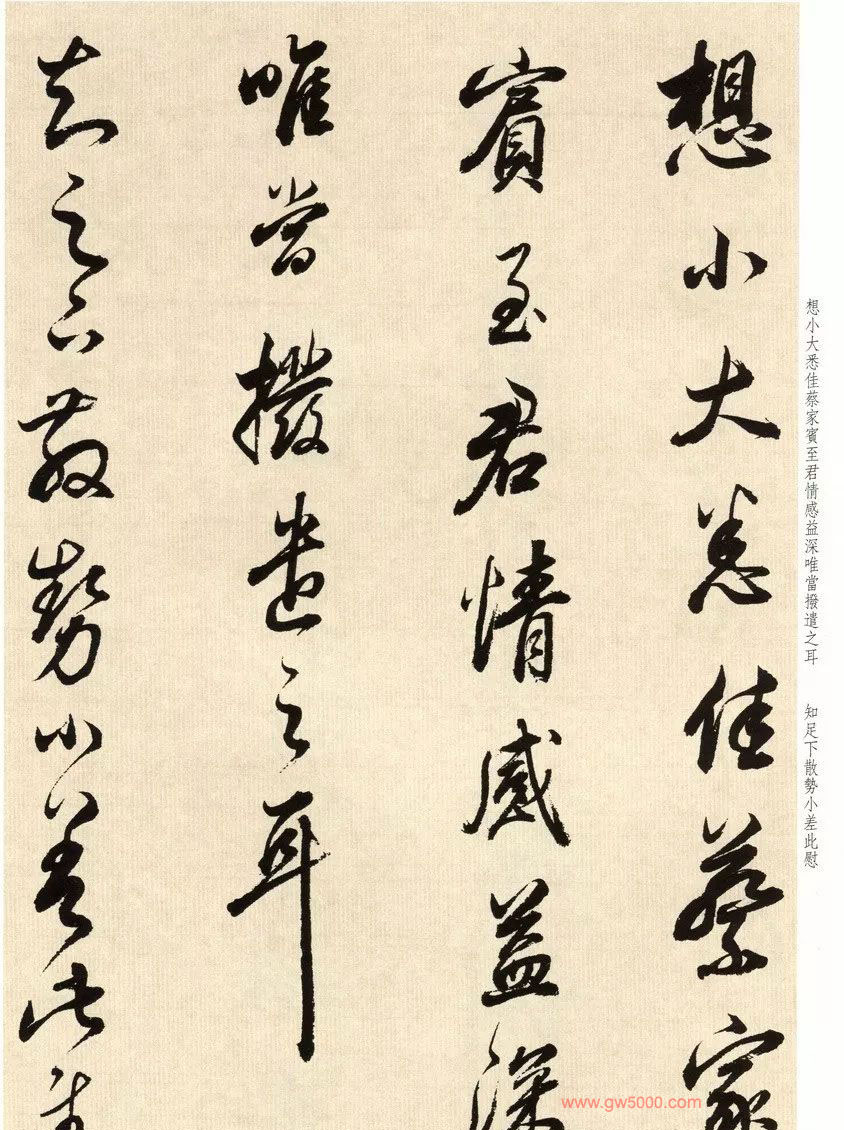 想小大悉佳蔡家
賓至君情感益深
唯當撥遣之耳
知足下散勢小差此
想小大悉佳蔡家賓至君情感益深唯當撥遣之耳 知足下散勢小差此慰
www.gw5000.com